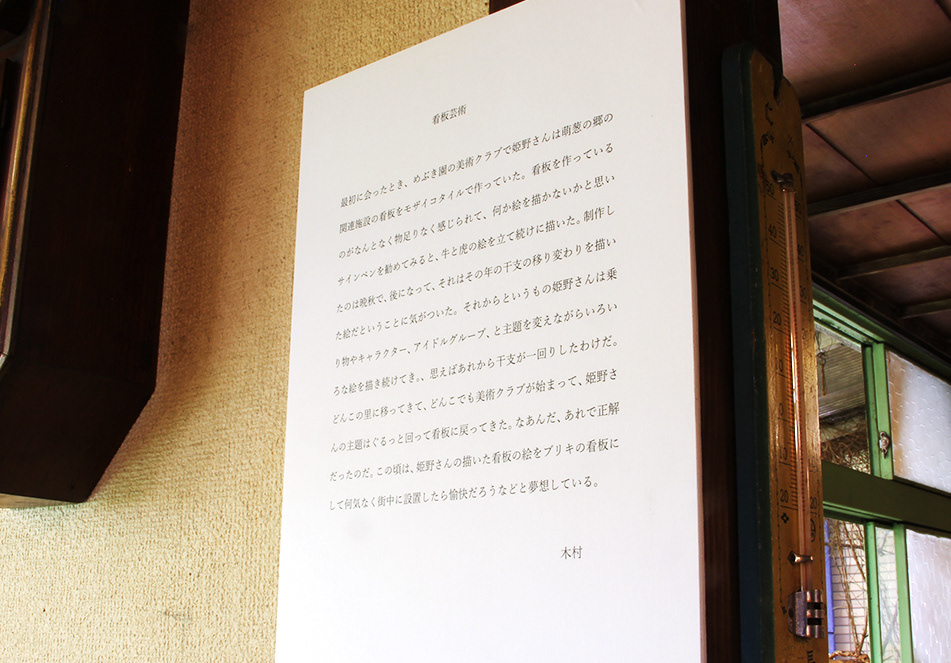 看板芸術
最初に会ったとき、めぶき園の美術クラブで姫野さんは萌葱の郷の
関連施設の看板をモザイコタイルで作っていた。看板を作っている
のがなんとなく物足りなく感じられて、何か絵を描かないかと思い
サインペンを勧めてみると、牛と虎の絵を立て続けに描いた。制作し
たのは晩秋で、後になって、それはその年の干支の移り変わりを描い
た絵だということに気がついた。それからというもの姫野さんは乗
り物やキャラクター、アイドルグループ、と主題を変えながらいろい
ろな絵を描き続けてき。、思えばあれから干支が一回りしたわけだ。
どんこの里に移ってきて、どんこでも美術クラブが始まって、姫野さ
んの主題はぐるっと回って看板に戻ってきた。なあんだ、あれで正解
だったのだ。この頃は、姫野さんの描いた看板の絵をブリキの看板に
して何気なく街中に設置したら愉快だろうなどと夢想している。
木村
50
40
30
20
10
0
10
20